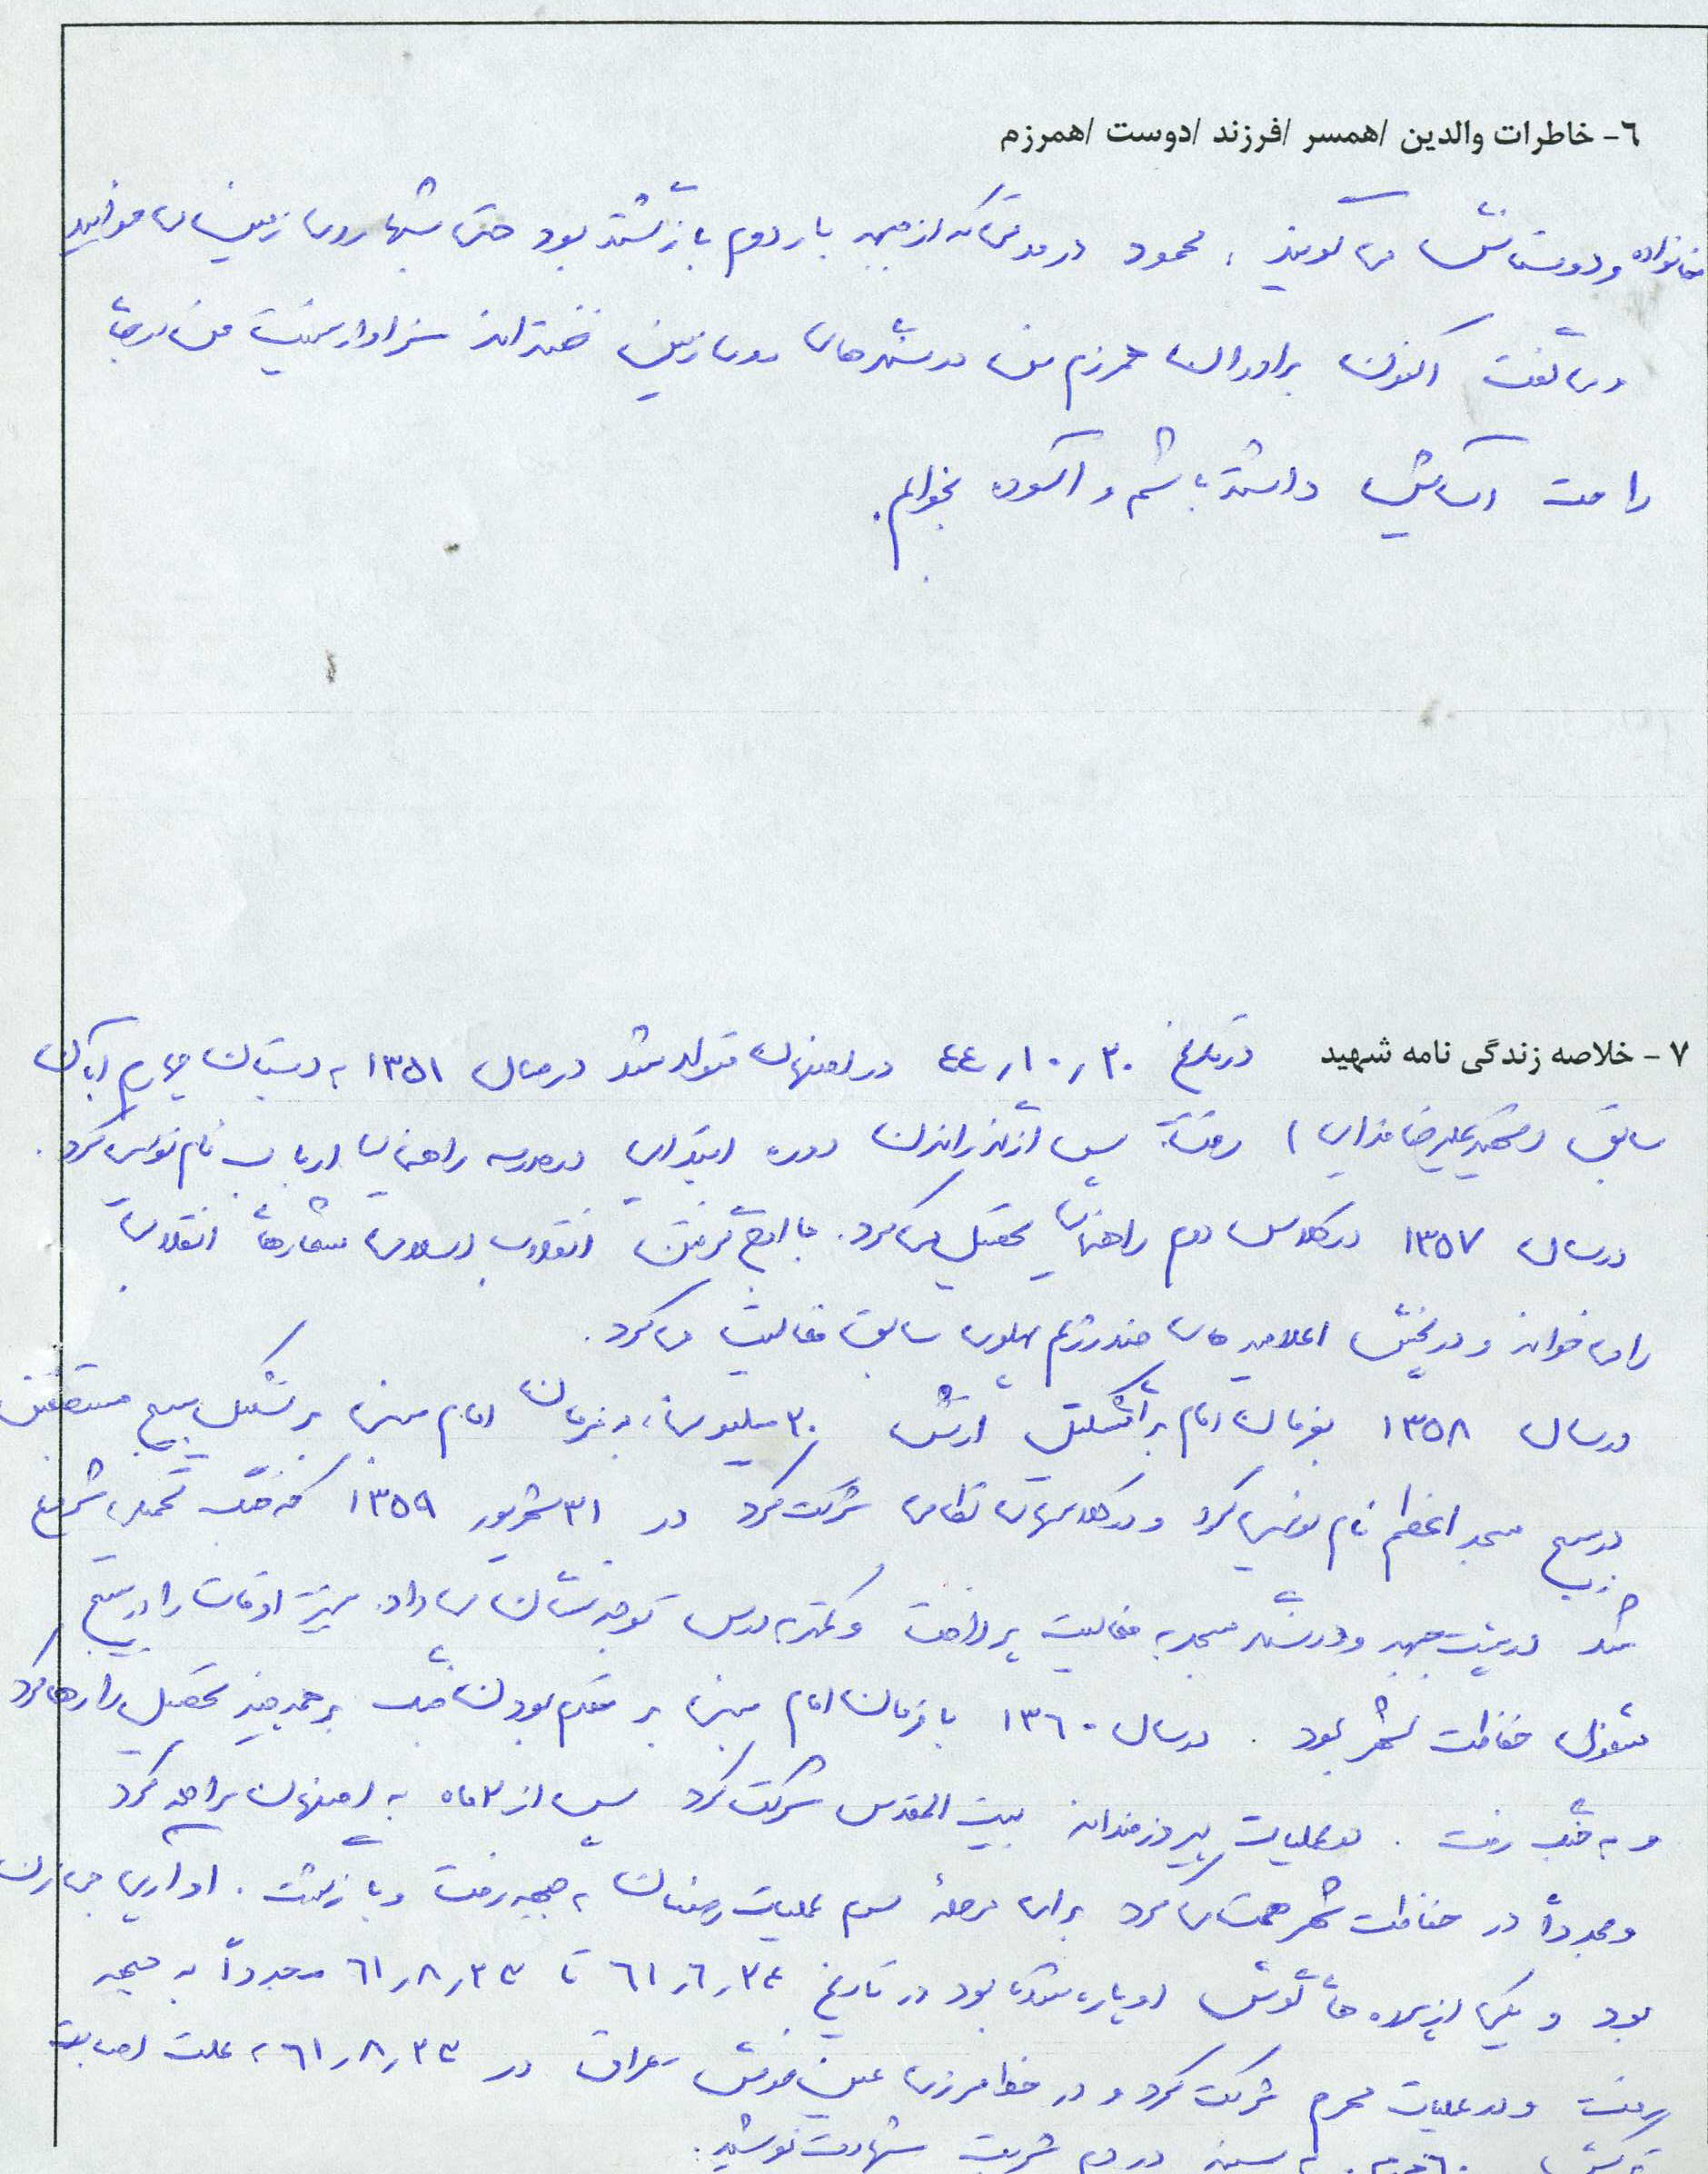 ٦- خاطرات والدین /همسر /فرزند /دوست /همرزم
خانواده و دوستانش می گویند: محمود در مدتی که از جبهه بار دوم بازگشته بود حتی شبها روی زمین می خوابید
و می گفت اکنون برادران همرزم من در سنگرهای روی زمین خفته اند سزاوار نیست من در جای
راحت آسایش داشته باشم و آسوده بخوابم.
٧- خلاصه زندگی نامه شهید در تاریخ ٣٠ر١٠ر٤٤ در اصفهان متولد شد در سال ١٣٥١ به دبستان چهارم آبان
سابق (شهید علیرضا فدایی) رفت. پس از گذراندن دوره ابتدایی در مدرسه راهنمایی ارباب نام نویسی کرد.
در سال ١٣٥٧ در کلاس دوم راهنمایی تحصیل می کرد. با اوج گرفتن انقلاب اسلامی شعارهای انقلابی
را می خواند و در پخش اعلامیه های ضد رژیم پهلوی سابق فعالیت می کرد.
در سال ١٣٥٨ بفرمان امام بر تشکیل ارتش ٢٠ میلیونی، به فرمان امام مبنی بر تشکیل بسیج مستضعفین
در بسیج مسجد اعظم نام نویسی کرد و در کلاسهای نظامی شرکت کرد در ٣١ شهریور ١٣٥٩ که جنگ تحمیلی شروع
شد در پشت جبهه و در سنگر مسجد به فعالیت پرداخت و کمتر به درس توجه نشان می داد. بیشتر اوقات را در بسیج
مشغول حفاظت شهر بود. در سال ١٣٦٠ با فرمان امام مبنی بر مقدم بودن جنگ بر همه چیز تحصیل را رها کرد
و به جنگ رفت. در عملیات پیروزمندانه بیت المقدس شرکت کرد پس از ٣ ماه به اصفهان مراجعه کرد
و مجدداً در حفاظت شهر همت می کرد برای مرحلهٔ سوم عملیات رمضان به جبهه رفت و بازگشت. او آرپی جی زن
بود و یکی از پرده های گوش او پاره شده بود در تاریخ ٢٤ر٦ر٦١ تا ٢٣ر٨ر٦١ مجدداً به جبهه
رفت و در عملیات محرم شرکت کرد و در خط مرزی عین خوش عراق در ٢٣ر٨ر٦١ به علت اصابت
ترکش به سینه در دم شربت شهادت نوشید.